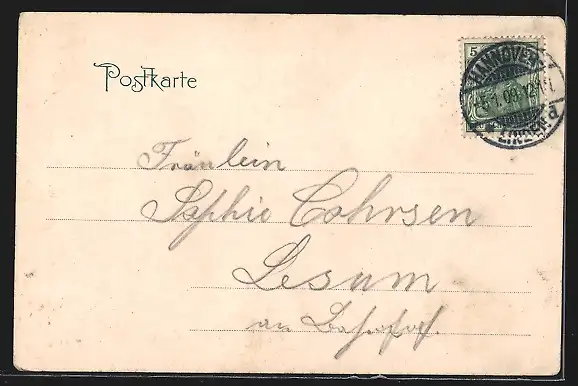 Postkarte
5
HANNOVER
5.1.03.12-1N.
LINDEN d
Fräulein
Sophie Cohrsen
Lesum
an Bahnhof.